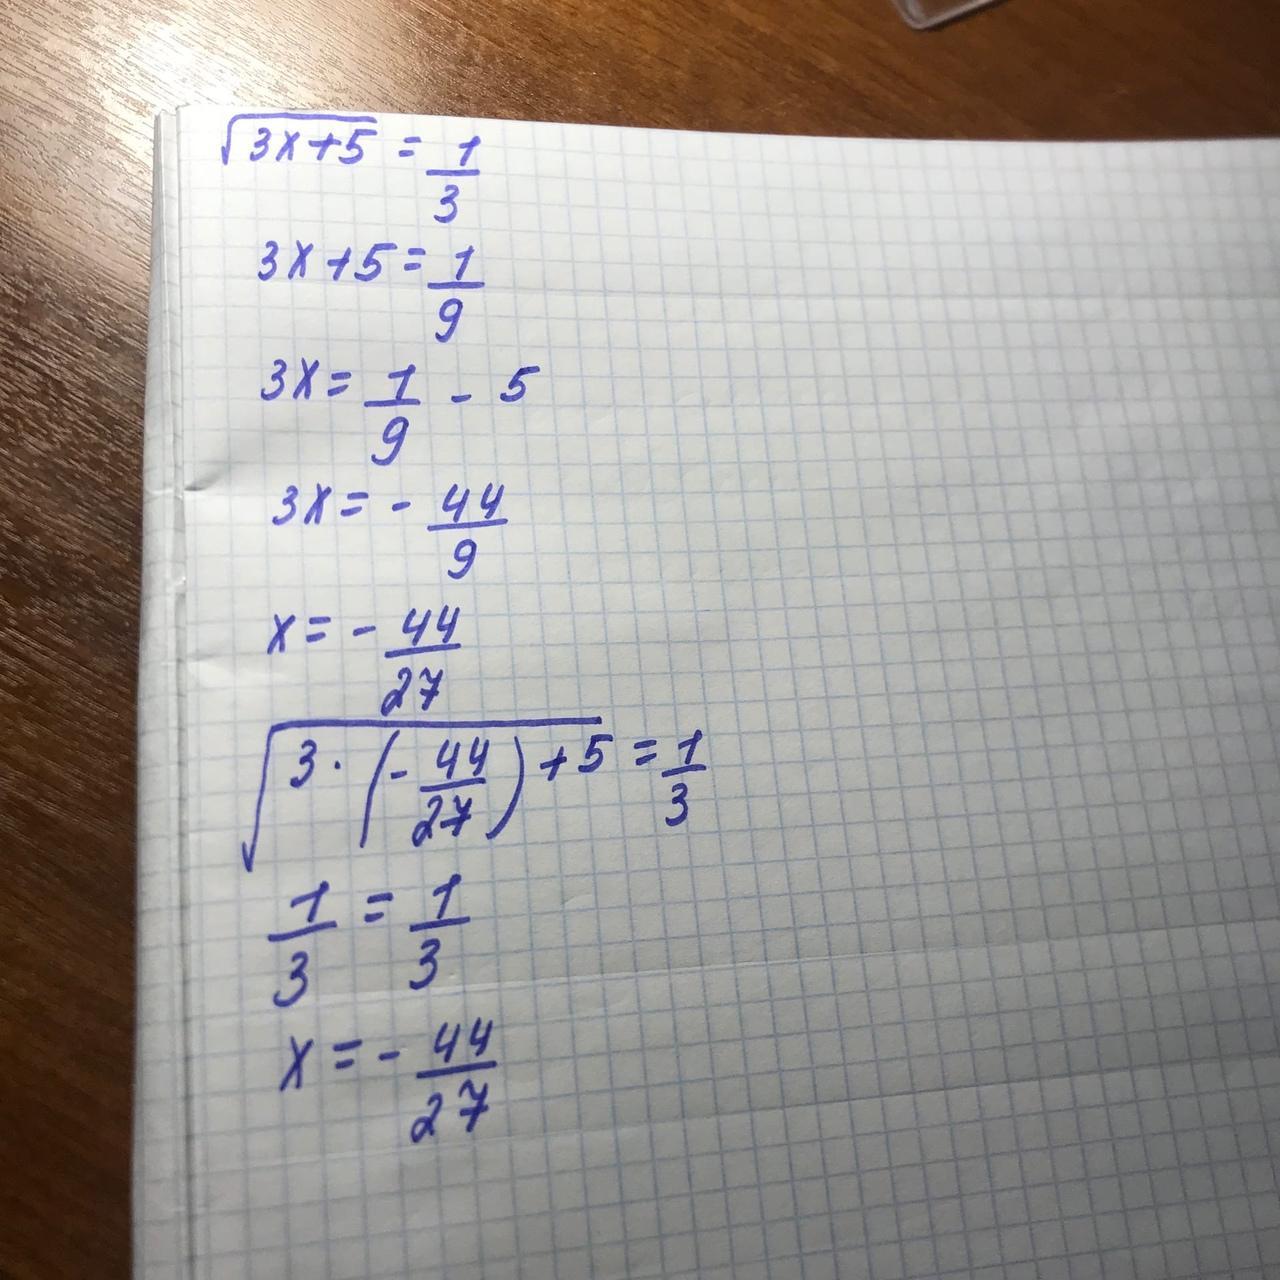 √3x+5 = 1/3
3x+5 = 1/9
3x = 1/9 - 5
3x = - 44/9
x = - 44/27
√3·(- 44/27)+5 = 1/3
1/3 = 1/3
x = - 44/27